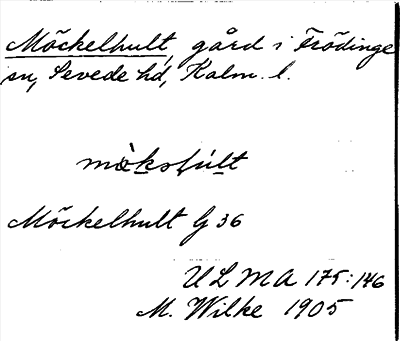 Möckelhult, gård i Frödinge
sn, Sevede hd, Kalm. l.
Möckelhult G 36
ULMA 175:146
M. Wilke 1905